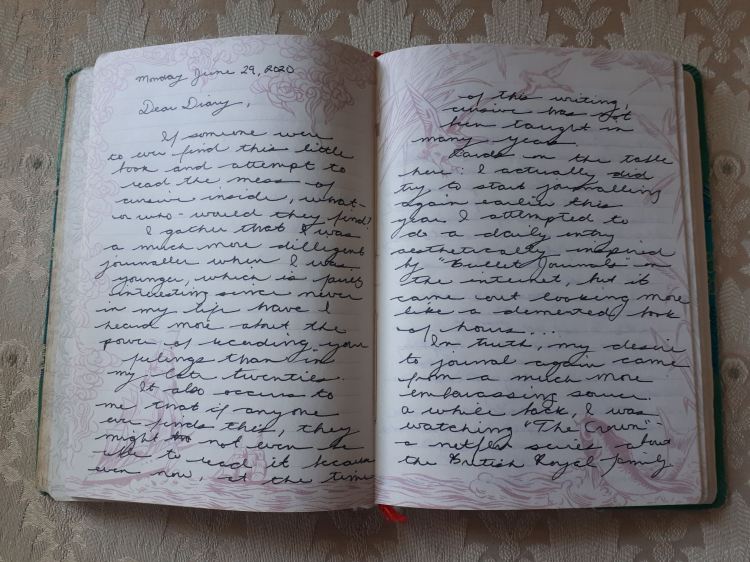 Monday June 29, 2020
Dear Diary,
If someone were
to ever find this little
book and attempt to
read the mess of
cursive inside, what -
or who - would they find?
I gather that I was
a much more dilligent
journaller when I was
younger, which is
interesting since never
in my life have I
heard more about the
power of recording your
feelings than in
my late twenties.
It also occurs to
me that if anyone
ever finds this, they
might not even be
able to read it because
even now, at the time
of this writing,
cursive has not
been taught in
many years.
Cards on the table
here: I actually did
try to start journalling
again earlier this
year. I attempted to
do a daily entry
aesthetically inspired
by "Bullet Journals" on
the internet, but it
came out looking more
like a demented book
of hours...
In truth, my desire
to journal again came
from a much more
embarassing source.
a while back, I was
watching "The Crown" -
a netflix series about
the British Royal family